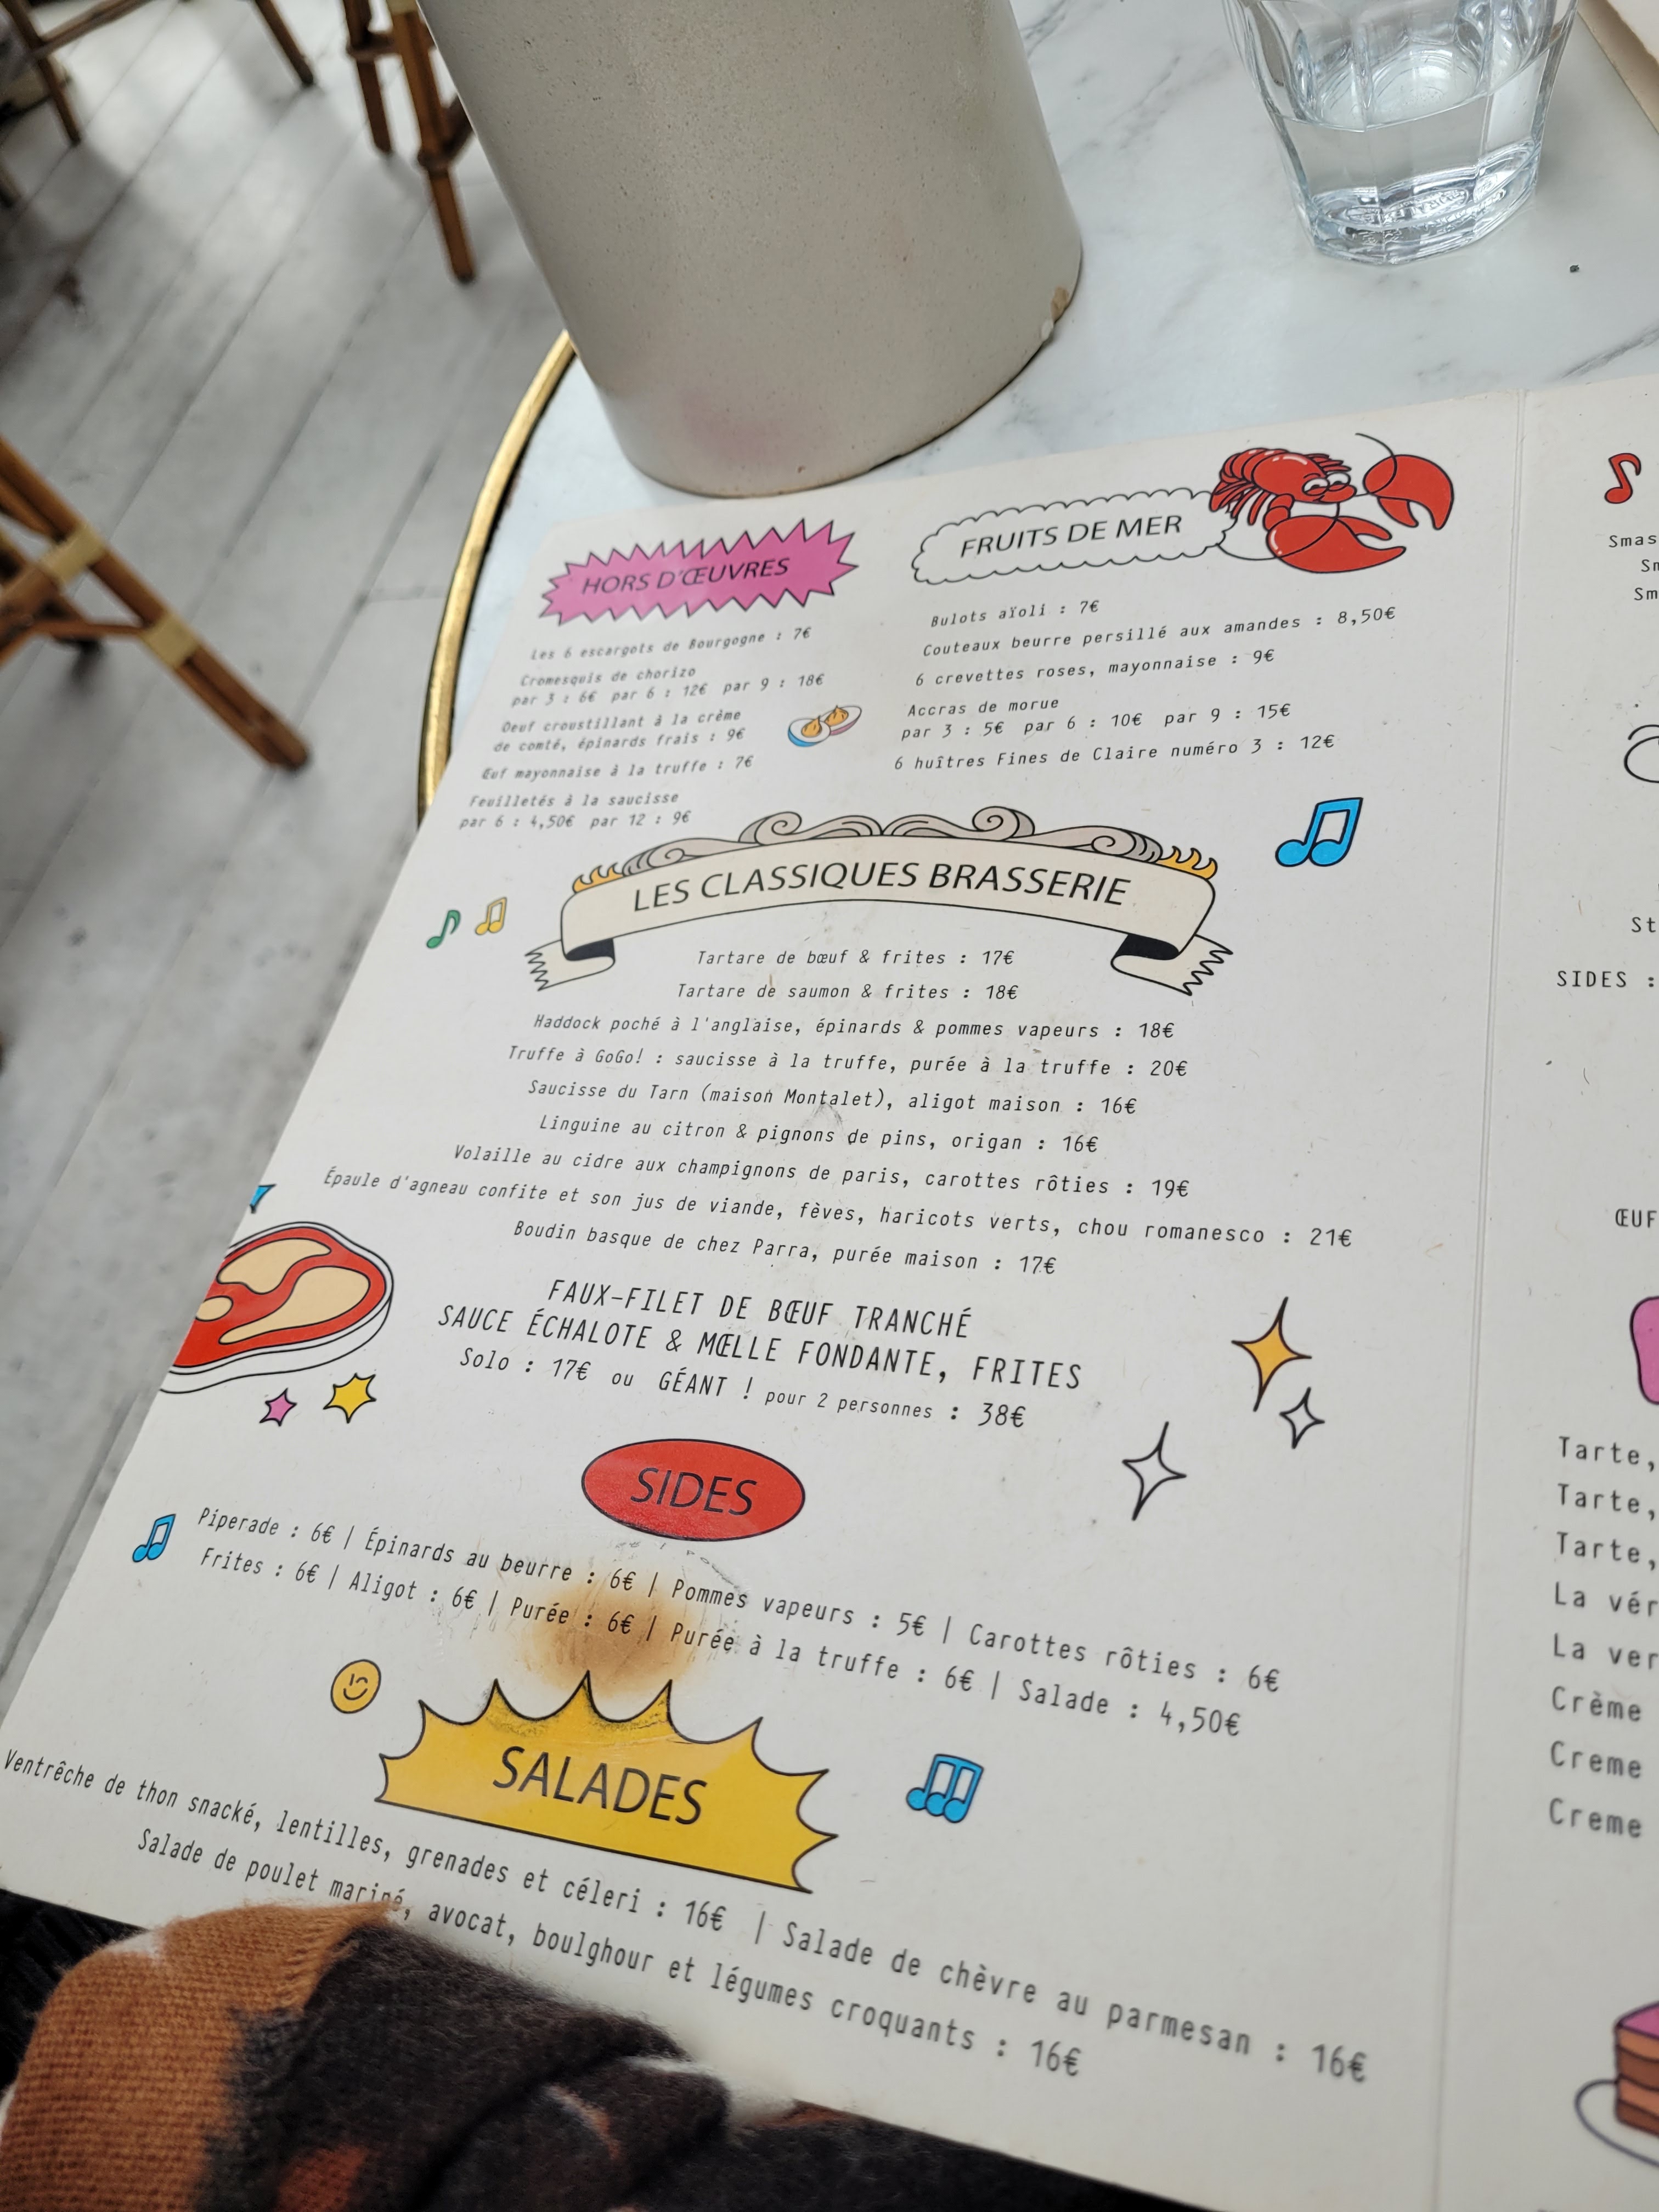 HORS D'ŒUVRES
Les 6 escargots de Bourgogne : 7€
Cromesquis de chorizo
par 3 : 6€ par 6 : 12€ par 9 : 18€
Oeuf croustillant à la crème
de comté, épinards frais : 9€
Œuf mayonnaise à la truffe : 7€
Feuilletés à la saucisse
par 6 : 4,50€ par 12 : 9€
FRUITS DE MER
Bulots aïoli : 7€
Couteaux beurre persillé aux amandes : 8,50€
6 crevettes roses, mayonnaise : 9€
Accras de morue
par 3 : 5€ par 6 : 10€ par 9 : 15€
6 huîtres Fines de Claire numéro 3 : 12€
LES CLASSIQUES BRASSERIE
Tartare de bœuf & frites : 17€
Tartare de saumon & frites : 18€
Haddock poché à l'anglaise, épinards & pommes vapeurs : 18€
Truffe à GoGo! : saucisse à la truffe, purée à la truffe : 20€
Saucisse du Tarn (maison Montalet), aligot maison : 16€
Linguine au citron & pignons de pins, origan : 16€
Volaille au cidre aux champignons de paris, carottes rôties : 19€
Épaule d'agneau confite et son jus de viande, fèves, haricots verts, chou romanesco : 21€
Boudin basque de chez Parra, purée maison : 17€
FAUX-FILET DE BŒUF TRANCHÉ
SAUCE ÉCHALOTE & MŒLLE FONDANTE, FRITES
Solo : 17€ ou GÉANT ! pour 2 personnes : 38€
SIDES
Piperade : 6€ | Épinards au beurre : 6€ | Pommes vapeurs : 5€ | Carottes rôties : 6€
Frites : 6€ | Aligot : 6€ | Purée : 6€ | Purée à la truffe : 6€ | Salade : 4,50€
SALADES
Ventrêche de thon snacké, lentilles, grenades et céleri : 16€ | Salade de chèvre au parmesan : 16€
Salade de poulet mariné, avocat, boulghour et légumes croquants : 16€
Smas
Sm
Sm
St
SIDES :
ŒUF
Tarte,
Tarte,
Tarte,
La vér
La ver
Crème
Creme
Creme